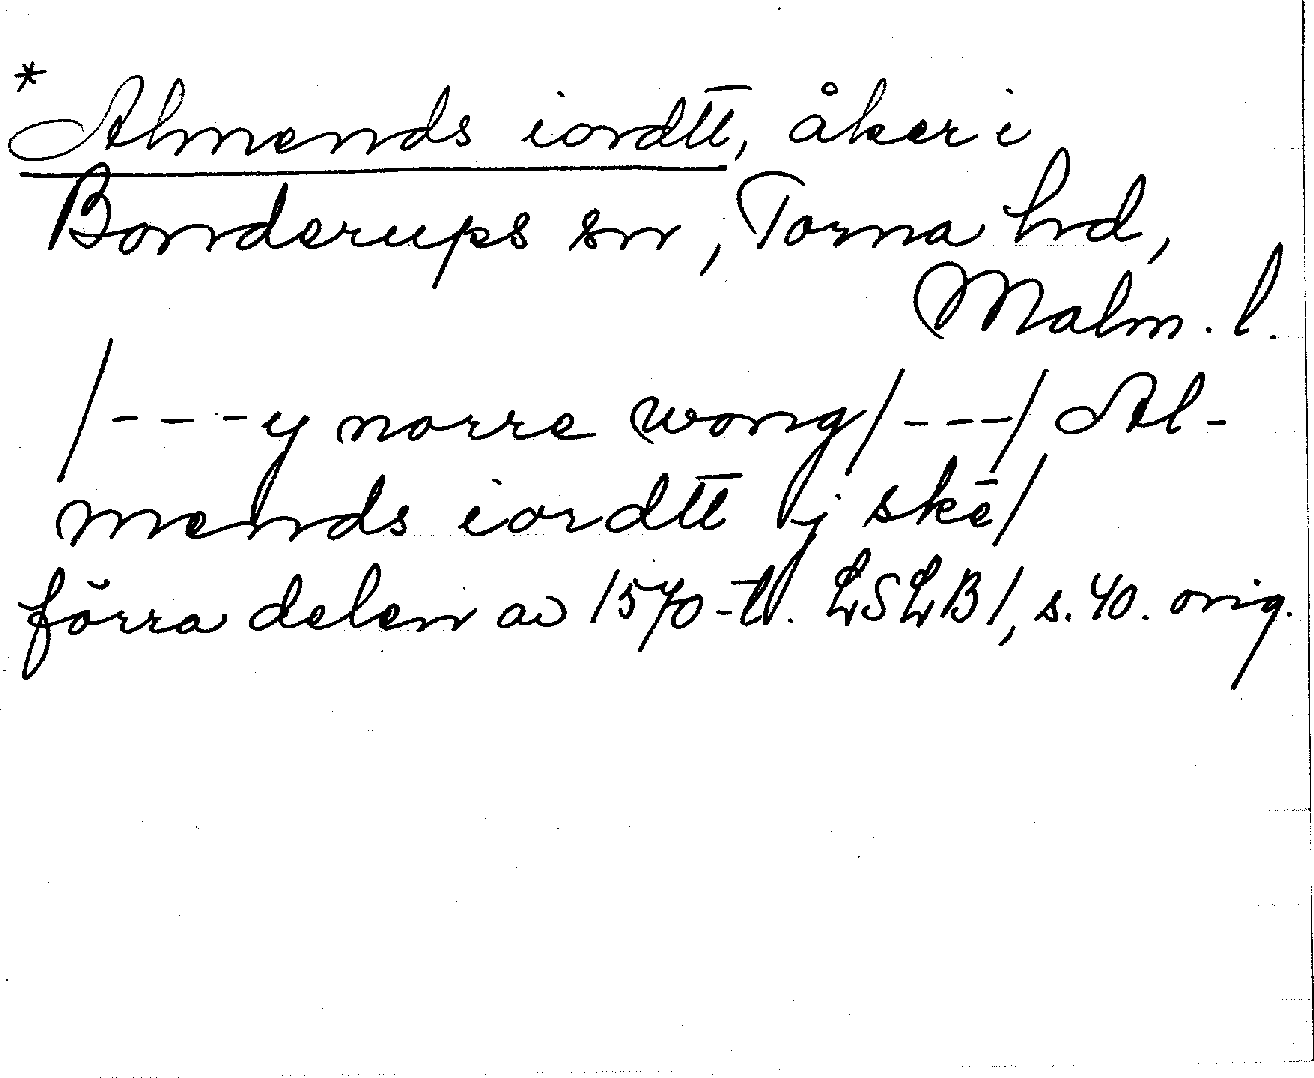 *
Almends iordtt, åker i
Bonderups sn, Torna hd,
Malm. l.
/---y norre wong/---/ Al-
mends iordtt j skē/
förra delen av 1570-t. LSLB1, s. 40. orig.